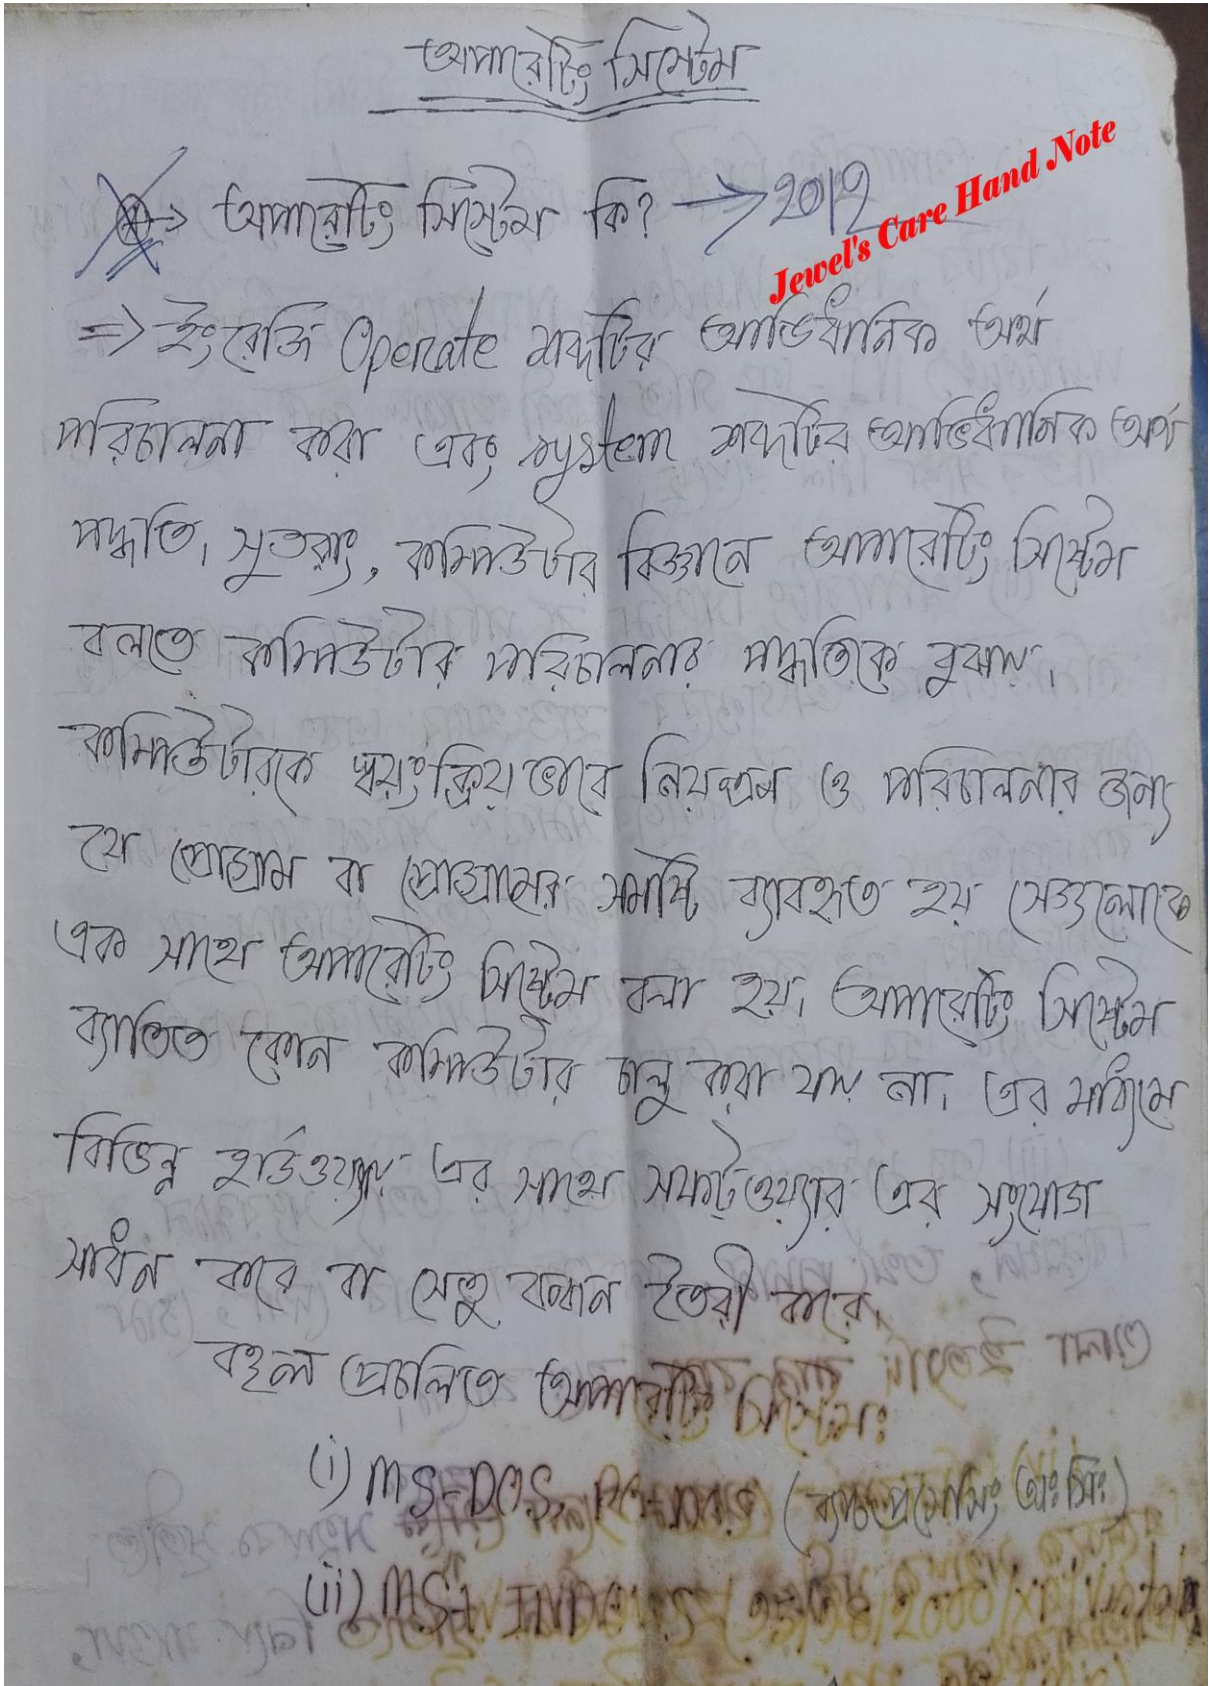 অপারেটিং সিস্টেম
অপারেটিং সিস্টেম কি? → ২০১২
Jewel's Care Hand Note
=> ইংরেজি Operate শব্দটির আভিধানিক অর্থ
পরিচালনা করা এবং system শব্দটির আভিধানিক অর্থ
পদ্ধতি। সুতরাং, কম্পিউটার বিজ্ঞানে অপারেটিং সিষ্টেম
বলতে কম্পিউটার পরিচালনার পদ্ধতিকে বুঝায়।
কম্পিউটারকে স্বয়ংক্রিয়ভাবে নিয়ন্ত্রন ও পরিচালনার জন্য
যে প্রোগ্রাম বা প্রোগ্রামের সমষ্টি ব্যাবহৃত হয় সেগুলোকে
এক সাথে অপারেটিং সিষ্টেম বলা হয়। অপারেটিং সিষ্টেম
ব্যাতিত কোন কম্পিউটার চালু করা যায় না। এর মাধ্যমে
বিভিন্ন হার্ডওয়্যার এর সাথে সফট্ওয়্যার এর সংযোগ
সাধন করে বা সেতু বন্ধন তৈরী করে।
বহুল প্রচলিত অপারেটিং সিস্টেমঃ
(i) MS-DOS, (ব্যাচপ্রসেসিং অঃ সিঃ)
(ii) MS- WINDOWS 2000/XP/Vista